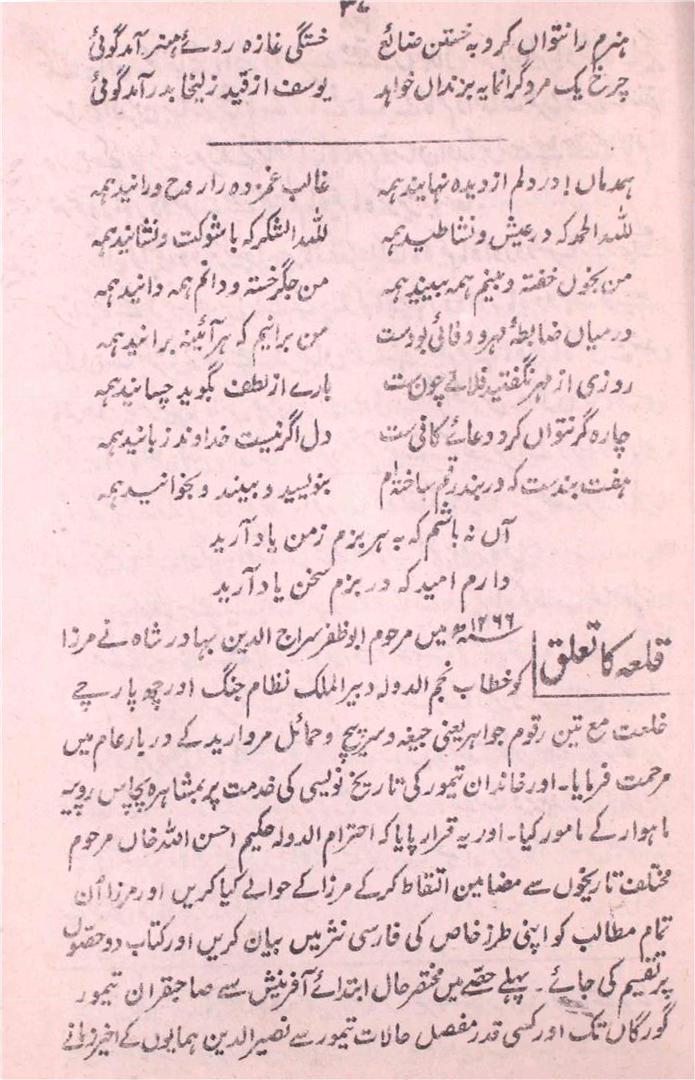 ہنرم را نتواں کرد بہ خستن ضائع خستگی غازہ روئے ہنر آمد گوئی
چرخ یک مرد گرانمایہ بزنداں خواہد یوسف از قید زلیخا بدر آمد گوئی
ہمدماں! در دلم از دیدہ نہانید ہمہ غالب غمزدہ را روح و رانید ہمہ
للہ الحمد کہ در عیش و نشاطید ہمہ للہ الشکر کہ باشوکت و نشانید ہمہ
من بخوں خفتہ و بینم ہمہ بینید ہمہ من جگر خستہ و دانم ہمہ دانید ہمہ
درمیاں ضابطۂ مہر و وفائی بودست من برانیم کہ ہر آئینہ برانید ہمہ
روزی از مہر نگفتید فلانے چونست بارے از لطف بگوید چسانید ہمہ
چارہ گر نتواں کرد دعائے کافی ست دل اگر نیست خداوند زبانید ہمہ
ہفت بندست کہ در بند رقم ساختہ ام بنویسید و ببیند و بخوانید ہمہ
آں نہ باشم کہ بہ ہر بزم زمن یاد آرید
دارم امید کہ در بزم سخن یاد آرید
قلعہ کا تعلق
۱۲۶۶ھ میں مرحوم ابوظفر سراج الدین بہادر شاہ نے مرزا
کو خطاب نجم الدولہ دبیر الملک نظام جنگ اور چھ پارچے
خلعت مع تین رقوم جواہر یعنی جیغہ و سرپیچ و حمائل مروارید کے دربار عام میں
مرحمت فرمایا۔ اور خاندان تیمور کی تاریخ نویسی کی خدمت پر بمشاہرہ پچاس روپیہ
ماہوار کے مامور کیا۔ اور یہ قرار پایا کہ احترام الدولہ حکیم احسن اللہ خاں مرحوم
مختلف تاریخوں سے مضامین التقاط کرکے مرزا کے حوالے کیا کریں اور مرزا اُن
تمام مطالب کو اپنی طرز خاص کی فارسی نثر میں بیان کریں اور کتاب دو حصّوں
پر تقسیم کی جائے۔ پہلے حصّے میں مختصر حال ابتدائے آفرینش سے صاحبقران تیمور
گورگاں تک اور کسی قدر مفصل حالات تیمور سے نصیر الدین ہمایوں کے اخیر زمانے